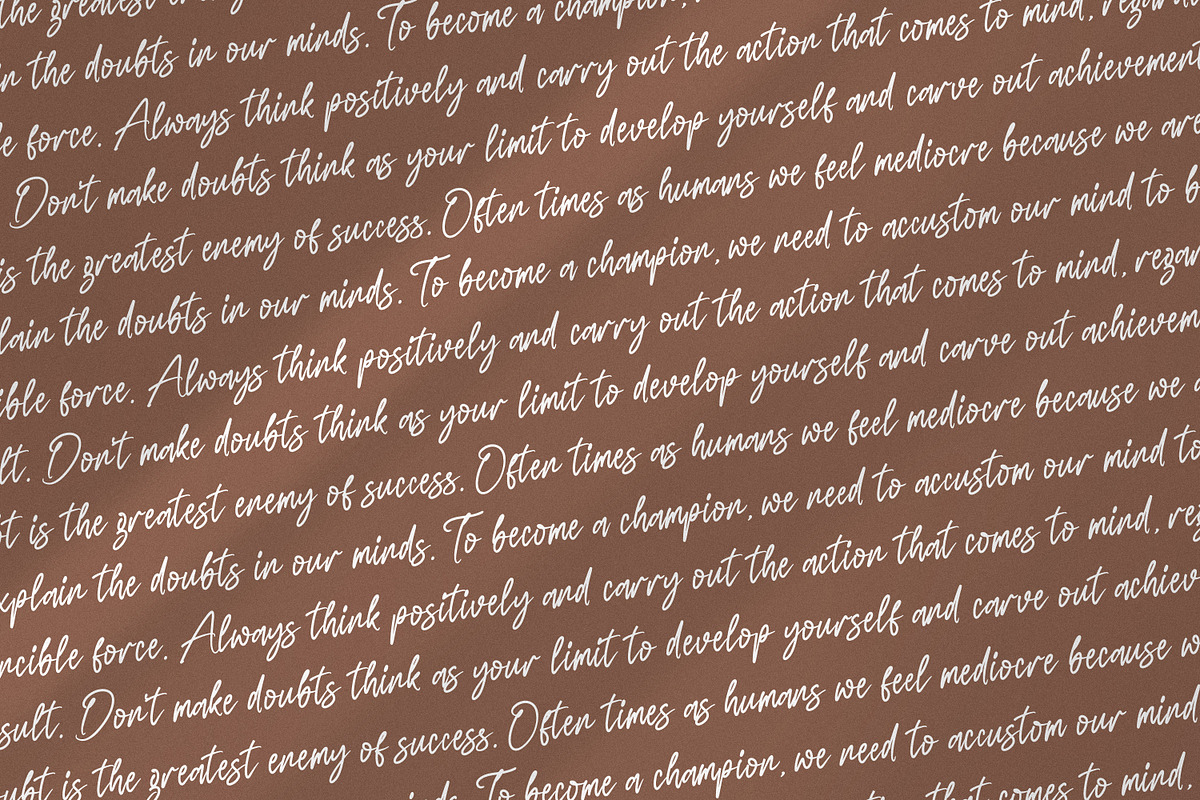 the greatest
in the doubts in our minds. To become a champion,
force. Always think positively and carry out the action that comes to mind,
Don't make doubts think as your limit to develop yourself and carve out achievement
is the greatest enemy of success. Often times as humans we feel mediocre because we are
the doubts in our minds. To become a champion, we need to accustom our mind to
force. Always think positively and carry out the action that comes to mind,
Don't make doubts think as your limit to develop yourself and carve out
is the greatest enemy of success. Often times as humans we feel mediocre because we
the doubts in our minds. To become a champion, we need to accustom our mind to
force. Always think positively and carry out the action that comes to mind,
Don't make doubts think as your limit to develop yourself and carve out
is the greatest enemy of success. Often times as humans we feel mediocre because
To become a champion, we need to accustom our mind
that comes to mind,